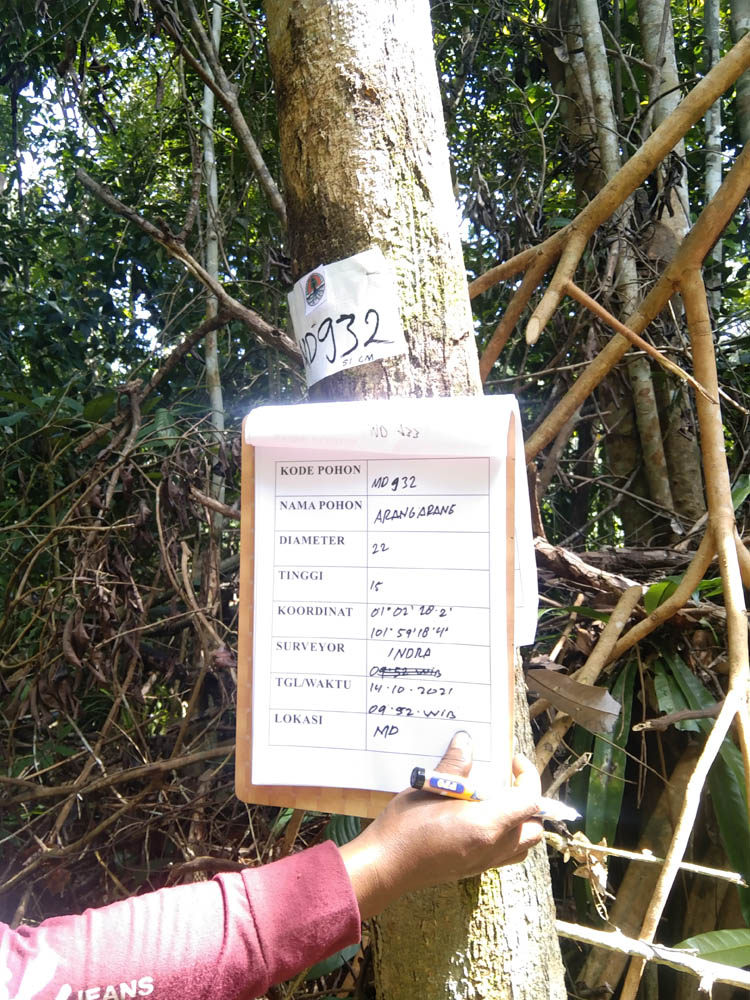 MD932
51 CM
KODE POHON MD932
NAMA POHON ARANG ARANG
DIAMETER 22
TINGGI 15
KOORDINAT 01°02'28.2'
101°59'18'4'
SURVEYOR INDRA
09:52 WIB
TGL/WAKTU 14.10.2021
09.52.WIB
LOKASI MD
JEANS